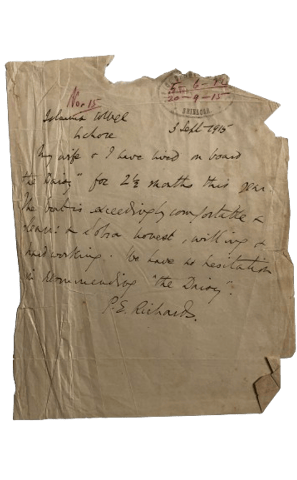 Nov 15
20-9-15
SRINAGAR
Islamia College
Lahore 3 Sept 1915
My wife & I have lived on board
"the Daisy" for 2½ months this year.
The boat is exceedingly comfortable &
clean: & honest, willing &
hardworking. We have no hesitation
in recommending "the Daisy".
P.E. Richards.